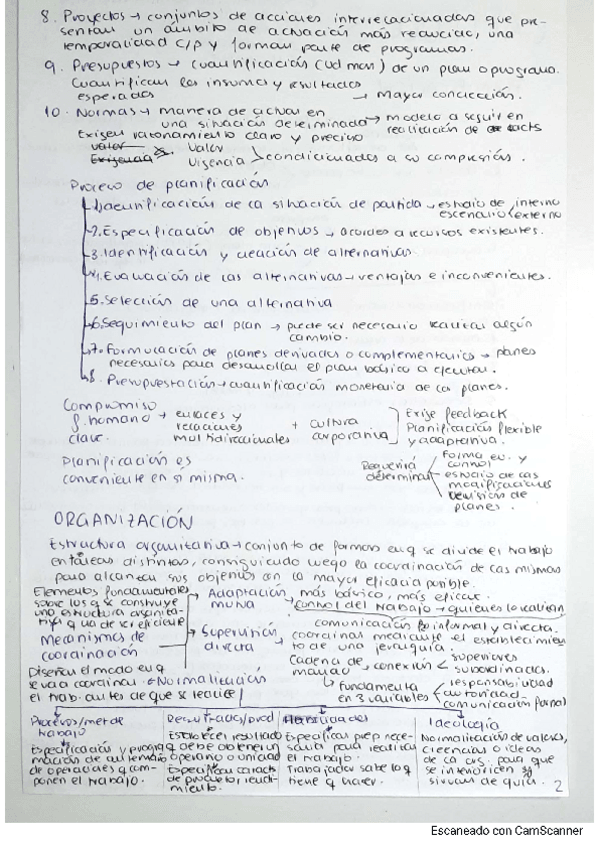 8. Proyectos → conjuntos de acciones interrelacionadas que pre-
sentan un ámbito de actuación más reducido, una
temporalidad c/p y forman parte de programas.
9. Presupuestos → cuantificación (ud mon) de un plan o programa.
Cuantifican los insumos y resultados
esperados → Mayor concreción.
10. Normas → manera de actuar en
una situación determinada → modelo a seguir en
realización de acts
Exigen razonamiento claro y preciso
valor Valor
Exigencia Vigencia > condicionados a su comprensión.
Proceso de planificación
1. Identificación de la situación de partida → estudio de interno
escenario externo
2. Especificación de objetivos → acordes a recursos existentes.
3. Identificación y creación de alternativas
4. Evaluación de las alternativas → ventajas e inconvenientes.
5. Selección de una alternativa
6. Seguimiento del plan → puede ser necesario realizar algún
cambio.
7. Formulación de planes derivados o complementarios → planes
necesarios para desarrollar el plan básico a ejecutar.
8. Presupuestación → cuantificación monetaria de los planes.
Compromiso
f. humano → enlaces y + cultura
clave. relaciones corporativa
multidireccionales
Exige feedback
Planificación flexible
y adaptativa.
Planificación es
conveniente en si misma.
Requerirá
determinar
Forma ev. y
control
estudio de las
modificaciones
Revisión de
planes.
ORGANIZACIÓN
Estructura organizativa → conjunto de formas en q se divide el trabajo
en tareas distintas, consiguiendo luego la coordinación de las mismas
para alcanzar sus objetivos con la mayor eficacia posible.
Elementos fundamentales
sobre los q se construye
una estructura organiza-
tiva q ha de ser eficiente
Mecanismos de
coordinación
Adaptación más básico, más eficaz.
mutua control del trabajo → quienes lo realizan
comunicación informal y directa.
Supervisión coordinar mediante el establecimien
directa to de una jerarquía.
Cadena de → conexión < superiores
mando subordinados.
Fundamenta
en 3 variables
responsabilidad
autoridad
comunicación formal
Diseñan el modo en q
se va a coordinar. Normalización
el trab. antes de que se realice
Procesos/met de
trabajo
Especificación y progra
mación de
de operaciones q com-
ponen el trabajo.
Resultados/prod
Establecer resultado
q debe obtener un
operario o unidad
Especificar caracts
de producto, rendi-
miento.
Habilidades
Especificar prep nece-
saria para realizar
el trabajo.
Trabajador sabe lo q
tiene q hacer.
Ideología
Normalización de valores,
creencias o ideas
de la org. para que
se interioricen y
sirvan de guía.
2
Escaneado con CamScanner